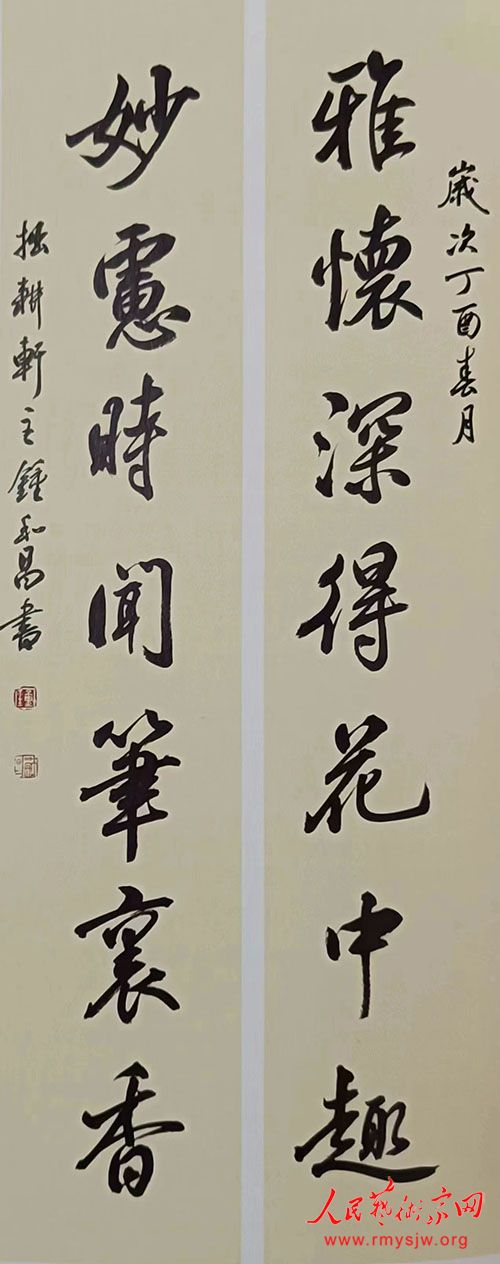 歲次丁酉春月
雅懷深得花中趣
妙慮時聞筆裏香
拙耕軒主鍾和昌書
人民藝術家网
www.rmysjw.org